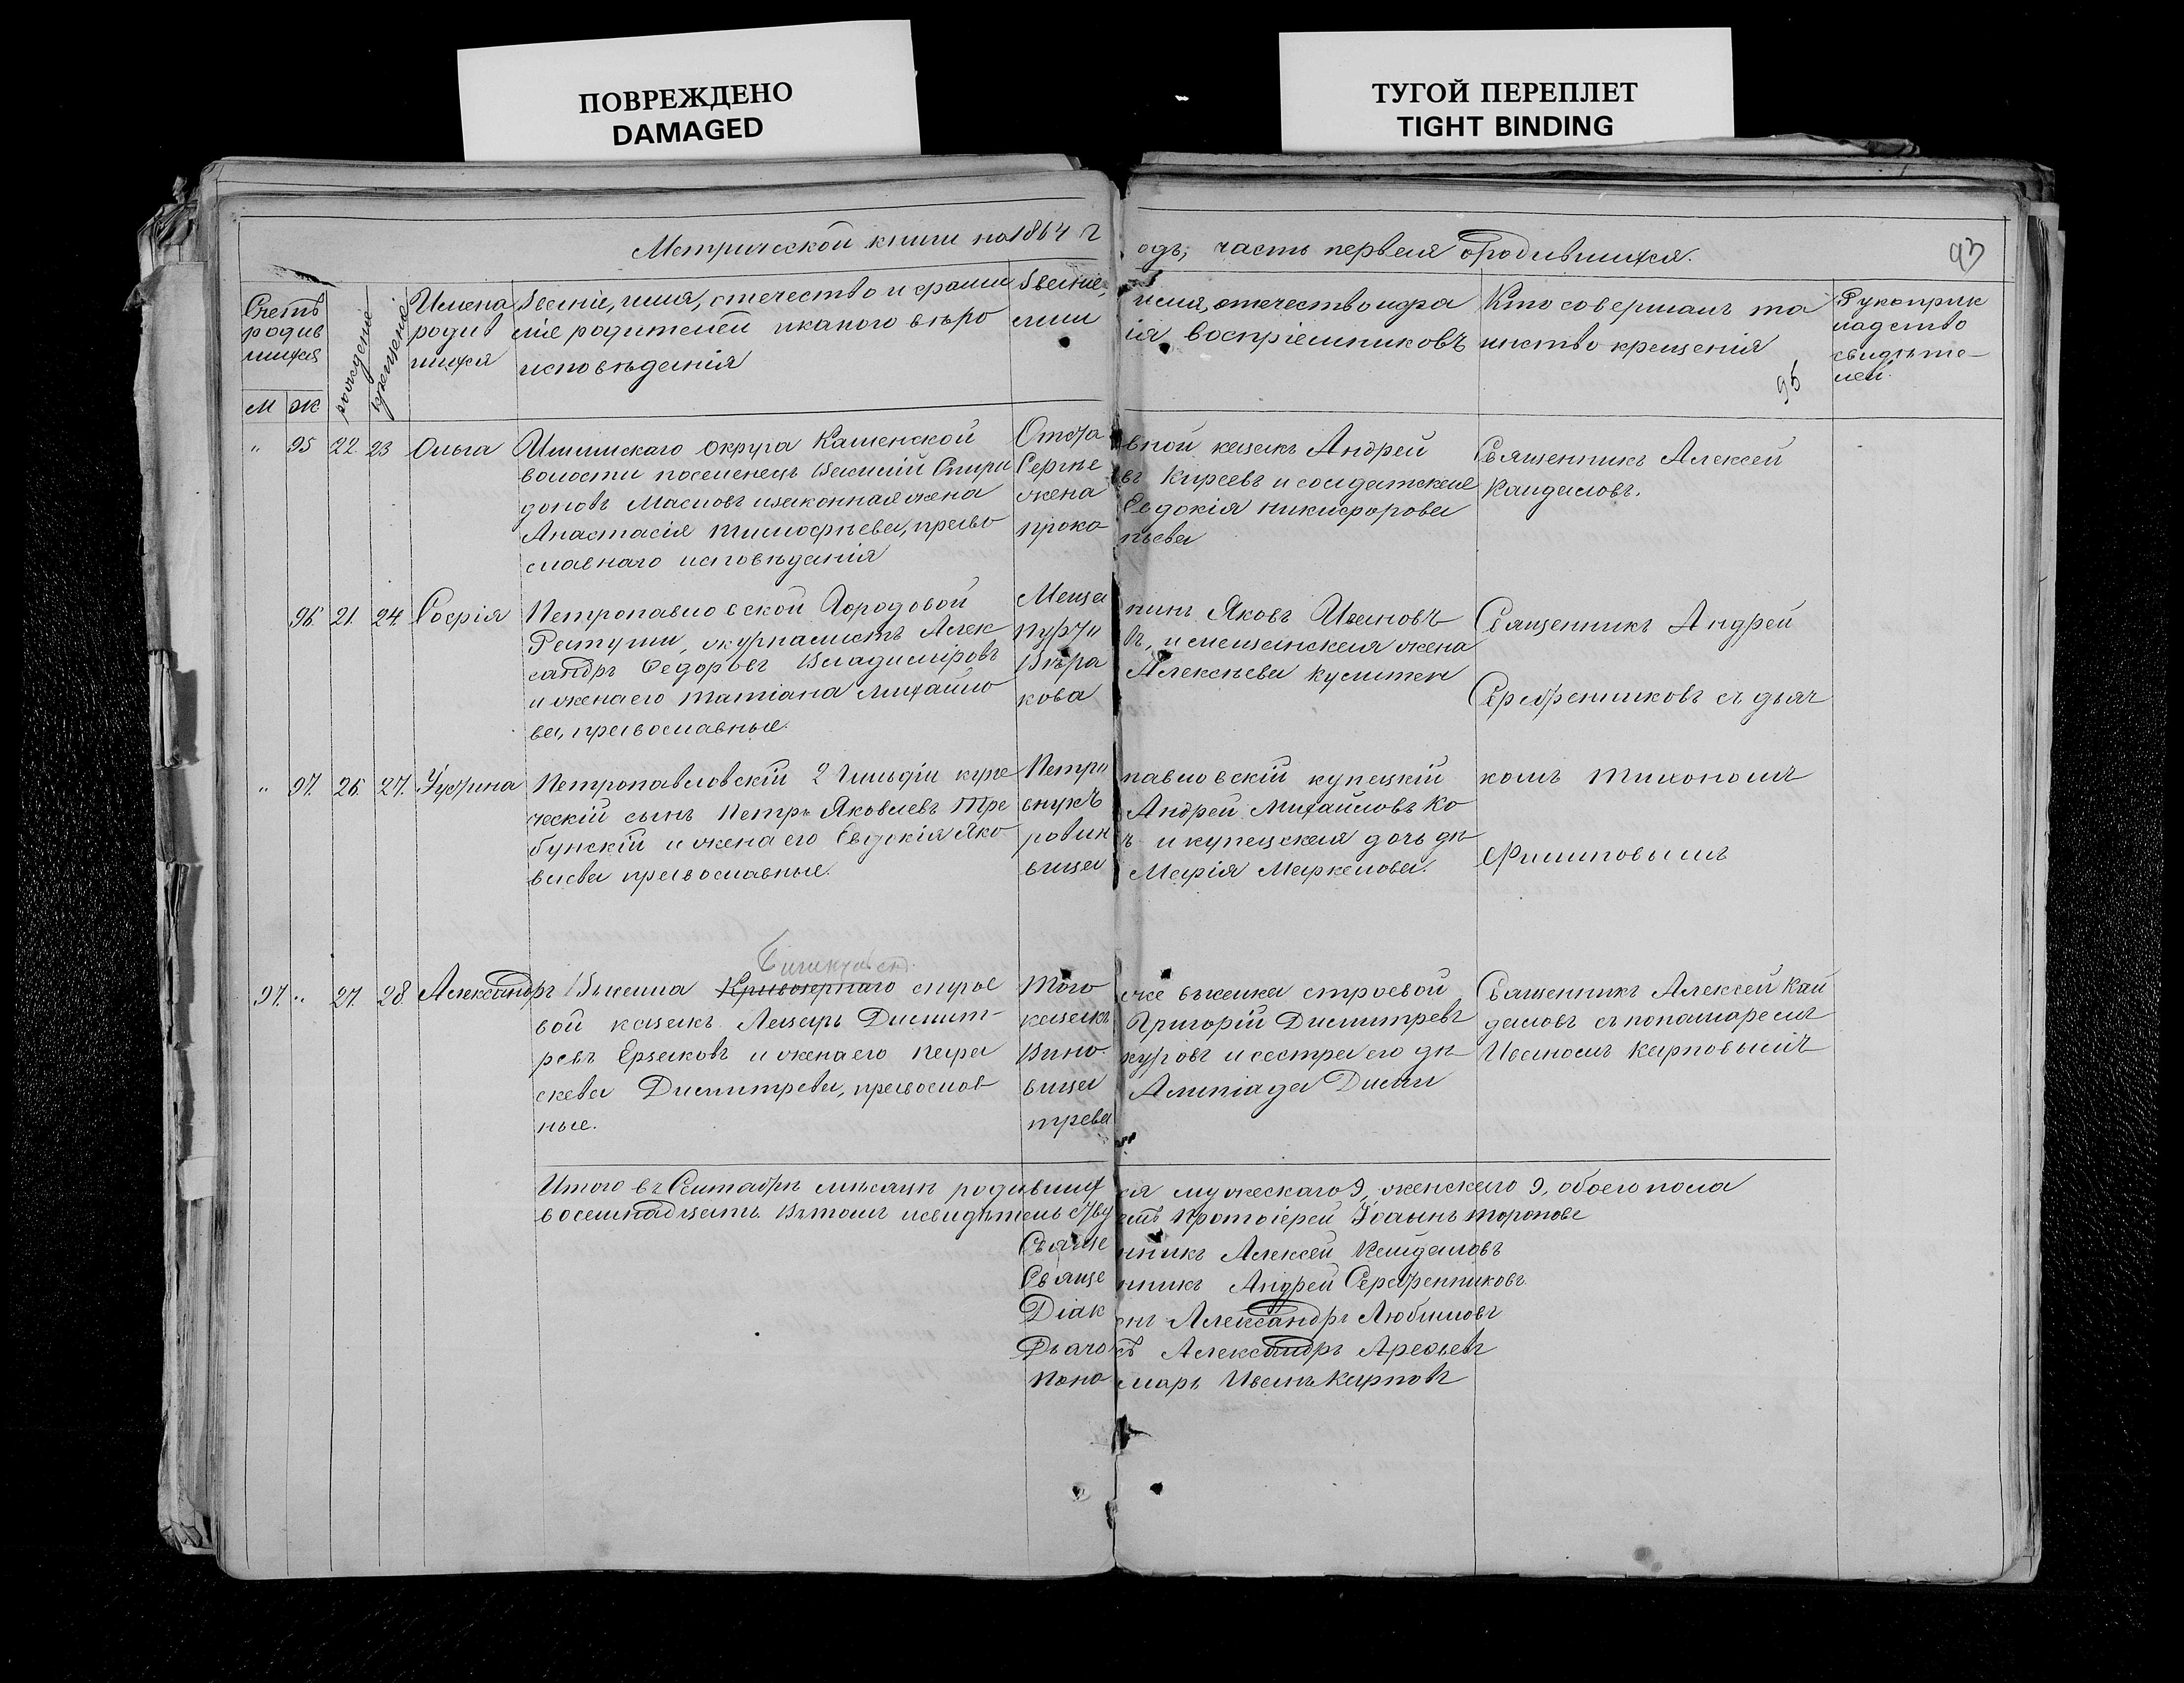 ПОВРЕЖДЕНО
DAMAGED
ТУГОЙ ПЕРЕПЛЕТ
TIGHT BINDING
Метрической книги на 1864 г
одъ, часть первая о родившихся.
93
Счетъ
родив
шихся
М Ж
рожденіе
крещенія
Имена
родив
шихся
Званіе, имя, отечество и фами
лія родителей и какого вѣро
исповѣданія
Званіе, имя, отечество и фа
миліи воспріемниковъ
Кто совершалъ та
инство крещенія
95
Рукоприк
ладство
свидѣте-
лей.
" 95 22. 23 Ольга
Ишимскаго Округа Каменской
волости поселенецъ Василій Спири
доновъ Масловъ и законная жена
Анастасія Тимофѣева, право
славнаго исповѣданія
Отставной казакъ Андрей
Сергѣевъ Кирѣевъ и солдатская
жена Евдокія Никифорова
Прокопьева
Священникъ Алексей
Кайдаловъ.
96. 21. 24. Софія
Петропавловской Городовой
Ратуши, журналистъ Алек
сандръ Федоровъ Владиміровъ
и жена его Татіана Михайло
ва, православные.
Мещанинъ Яковъ Ивановъ
и мещанская жена
Вѣра Алексѣева
кова
Священникъ Андрей
Серебренниковъ съ дьяч
" 97. 26. 27. Устина
Петропавловскій 2 гильдіи купе
ческій сынъ Петръ Яковлевъ Тре
бунскій и жена его Евдокія Яко
влева православные.
Петропавловскій купецкій
внукъ Андрей Михайловъ Ко
ровинъ и купецская дочь дѣ
вица Марія Маркелова.
комъ Тихономъ
Филиповымъ
97. " 27. 28. Александръ
Выселка Кривозернаго строе
вой казакъ Лазарь Димит-
ревъ Ерзаковъ и жена его Пара
скева Димитрева, православ-
ные.
Того же выселка строевой
казакъ Григорій Димитревъ
Винокуровъ и сестра его дѣ
вица Алипіада Дими
трева
Священникъ Алексей Кай
даловъ съ пономаремъ
Иваномъ Карповымъ
Итого въ Сентябрѣ мѣсяцѣ родившихся мужескаго 9, женскаго 9, обоего пола
восемнадцать. Въ томъ и свидѣтельствуемъ Протоіерей Іоаннъ Тороповъ
Священникъ Алексей Кайдаловъ
Священникъ Андрей Серебренниковъ
Діаконъ Александръ Любимовъ
Дьячокъ Александръ Арефьевъ
Пономарь Иванъ Карповъ